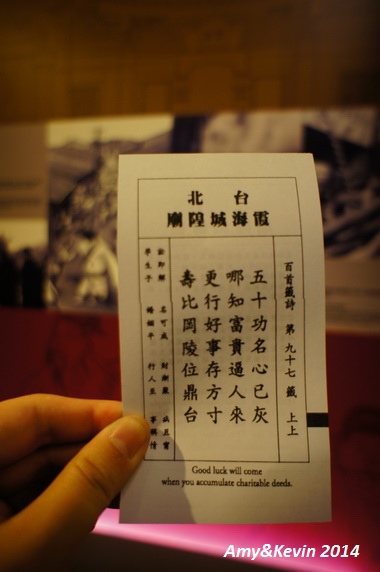 台北
霞海城隍廟
百首籤詩 第九十七籤 上上
五十功名心已灰
哪知富貴逼人來
更行好事存方寸
壽比岡陵位鼎台
訟即解 名可成 財漸
生子 婚姻平 行人 事稱情
Good luck will come
when you accumulate charitable deeds.
Amy&Kevin 2014